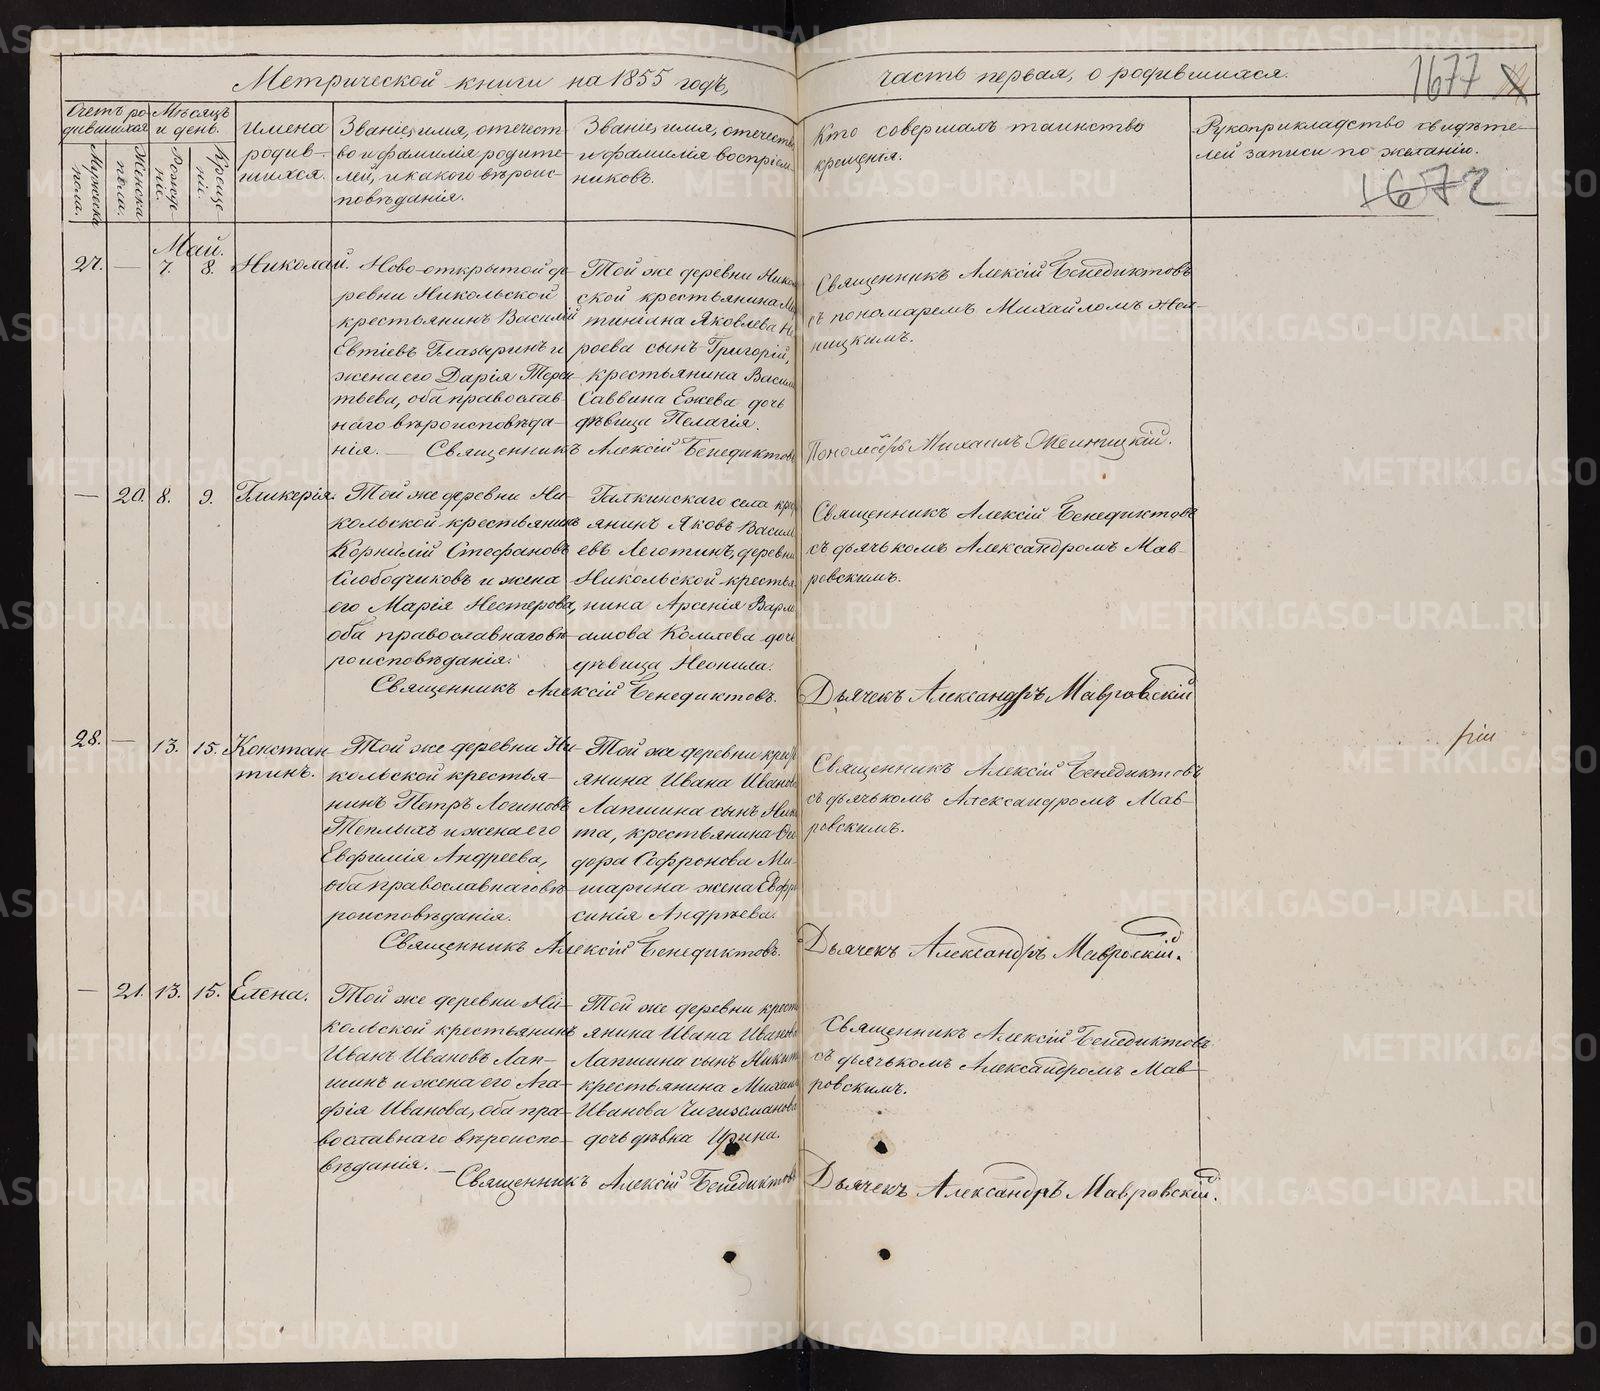 Метрической книги на 1855 годъ,
часть первая, о родившихся.
1677
Счетъ ро-
дившихся
Мужеска
пола.
Женска
пола.
Мѣсяцъ
и день.
Рожде
ніе.
Креще
ніе.
Имена
родив-
шихся.
Званіе, имя, отечест-
во и фамилія родите-
лей, и какого вѣроис-
повѣданія.
Званіе, имя, отечество
и фамилія воспріем-
никовъ.
Кто совершалъ таинство
крещенія.
Рукоприкладство свидѣте-
лей записи по желанію.
1672
Май.
27. — 7. 8. Николай.
Ново-открытой де-
ревни Никольской
крестьянинъ Василій
Евтіевъ Глазыринъ и
жена его Дарія
тьева, оба православ-
наго вѣроисповѣда-
нія. — Священникъ Алексій Бенедиктовъ
Той же деревни Николь
ской крестьянина
Яковлева
роева сынъ Григорій,
крестьянина Васил
Саввина Ежева дочь
дѣвица Пелагія.
Священникъ Алексій Бенедиктовъ
съ пономаремъ Михайломъ
ницкимъ.
Пономарь Михаилъ
— 20. 8. 9. Гликерія.
Той же деревни Ни-
кольской крестьянинъ
Корнилій Стефановъ
Слободчиковъ и жена
его Марія Нестерова,
оба православнаго вѣ-
роисповѣданія.
Священникъ Алексій Бенедиктовъ.
Галкинскаго села крес
янинъ Яковъ Васил
евъ Леготинъ, деревни
Никольской крестья
нина Арсенія Варла
амова Комлева дочь
дѣвица Неонила.
Священникъ Алексій Бенедиктовъ
съ дьячькомъ Александромъ Мав-
ровскимъ.
Дьячекъ Александръ Мавровскій
28. — 13. 15. Констан
тинъ.
Той же деревни Ни-
кольской крестья-
нинъ Петръ Логиновъ
Теплыхъ и жена его
Евфимія Андреева,
оба православнаго вѣ-
роисповѣданія.
Священникъ Алексій Бенедиктовъ.
Той же деревни крест
янина Ивана Иванова
Лапшина сынъ Ники
та, крестьянина Ѳе
дора Софронова Ми-
шарина жена Евфро
синія Андрѣева.
Священникъ Алексій Бенедиктовъ
съ дьячькомъ Александромъ Мав-
ровскимъ.
Дьячекъ Александръ Мавровскій.
— 21. 13. 15. Елена.
Той же деревни Ни-
кольской крестьянинъ
Иванъ Ивановъ Лап-
шинъ и жена его Ага-
фія Иванова, оба пра-
вославнаго вѣроиспо-
вѣданія. — Священникъ Алексій Бенедиктовъ
Той же деревни крест
янина Ивана Иванова
Лапшина сынъ Никита
крестьянина Михаила
Иванова Чигизманова
дочь дѣвка Ирина.
Священникъ Алексій Бенедиктовъ
съ дьячькомъ Александромъ Мав-
ровскимъ.
Дьячекъ Александръ Мавровскій.
METRIKI.GASO-URAL.RU